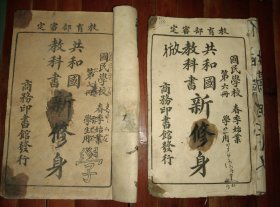 教育部審定
國民學校
春季始業
學生用
共和國
教科書
新修身
商務印書館發行
教育部審定
國民學校
第六冊
春季始業
學生用
共和國
教科書
新修身
商務印書館發行